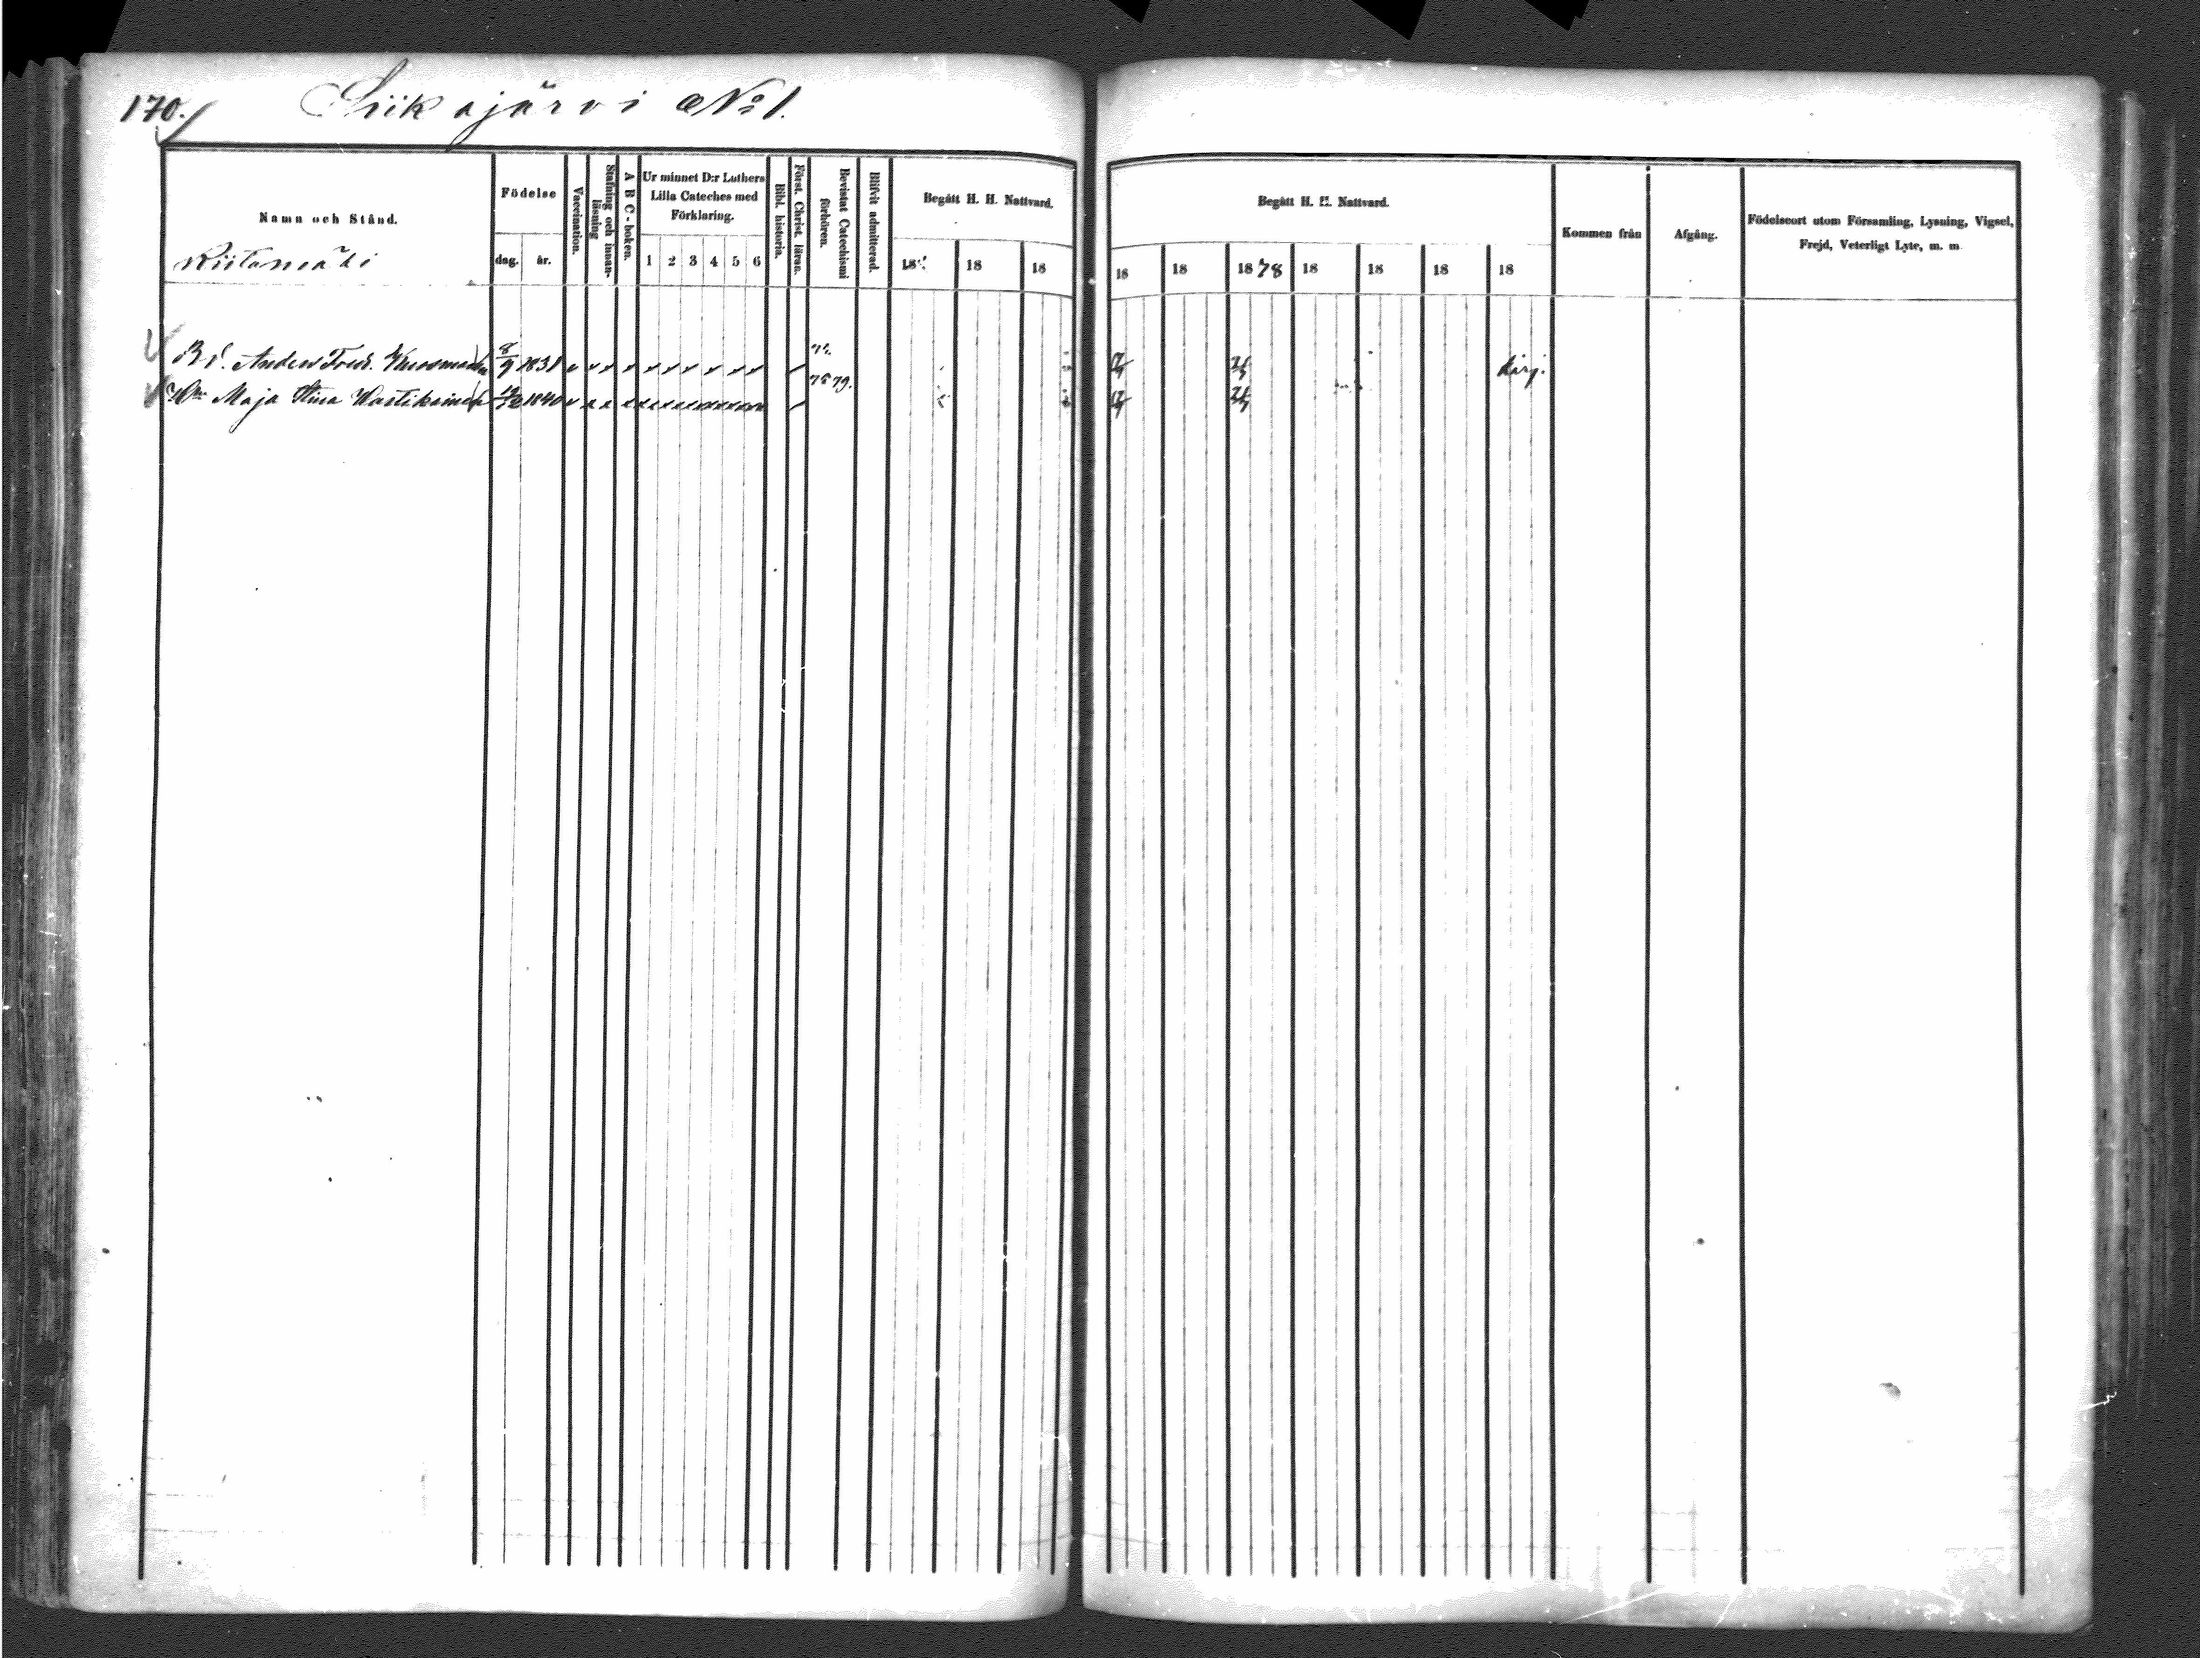 170. Siikajärvi No 1.
Namn och Stånd.
Födelse
dag. år.
Vaccination.
Stafning och innanläsning
A B C-boken.
Ur minnet D:r Luthers Lilla Cateches med Förklaring.
1 2 3 4 5 6
Bibl. historia.
Först. Christ. läran.
Bevistat Catechismi förhören.
Blifvit admitterad.
Begått H. H. Nattvard.
18 18 18
Begått H. H. Nattvard.
18 18 1878 18 18 18 18
Kommen från
Afgång.
Födelseort utom Församling, Lysning, Vigsel, Frejd, Veterligt Lyte, m. m.
Riitamäki
Anders Fred. 8/9 1831 kirj.
Maja Stina 1840 78 79.